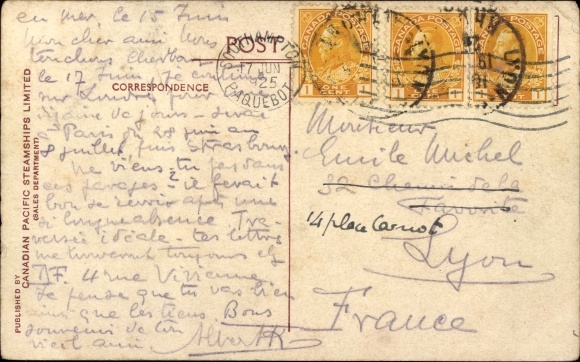 en mer, le 15 Juin
Mon cher ami Nous
touchons Cherbourg
le 17 Juin. Je continue
sur Londres pour
une de jours - serai
à Paris du 28 juin au
8 juillet puis Strasbourg.
Ne viens tu pas dans
ces parages? il serait
bon de se voir après une
si longue absence Tra-
versée idéale - tes lettres
me trouveront toujours chez
4 rue Vivienne
Je pense que tu vas bien
ainsi que les tiens. Bons
souvenirs de ton
vieil ami. Albert
POST
CORRESPONDENCE
PUBLISHED BY
CANADIAN PACIFIC STEAMSHIPS LIMITED
(SALES DEPARTMENT)
SOUTHAMPTON
17 JUN
25
PAQUEBOT
CANADA POSTAGE
ONE CENT
CANADA POSTAGE
1
CANADA POSTAGE
1
LYON
Monsieur
Emile Michel
32 Chemin de la
Favorite
14 place Carnot
Lyon
France